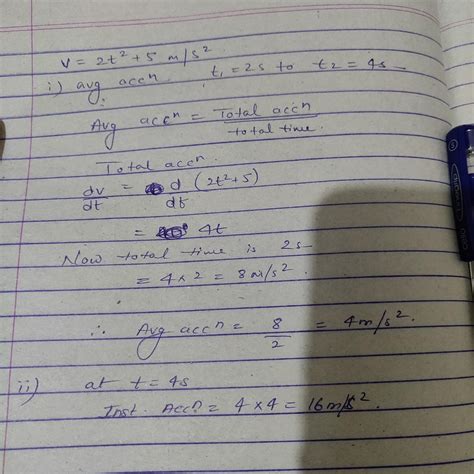 V = 2t² + 5 m/s²
i) avg accⁿ t₁ = 2s to t₂ = 4s
Avg accⁿ = Total accⁿ / total time.
Total accⁿ.
dv/dt = d/dt (2t²+5)
= 4t
Now total time is 2s
= 4 × 2 = 8 m/s²
∴ Avg accⁿ = 8/2 = 4 m/s².
ii) at t = 4s
Inst. Accⁿ = 4 × 4 = 16 m/s².